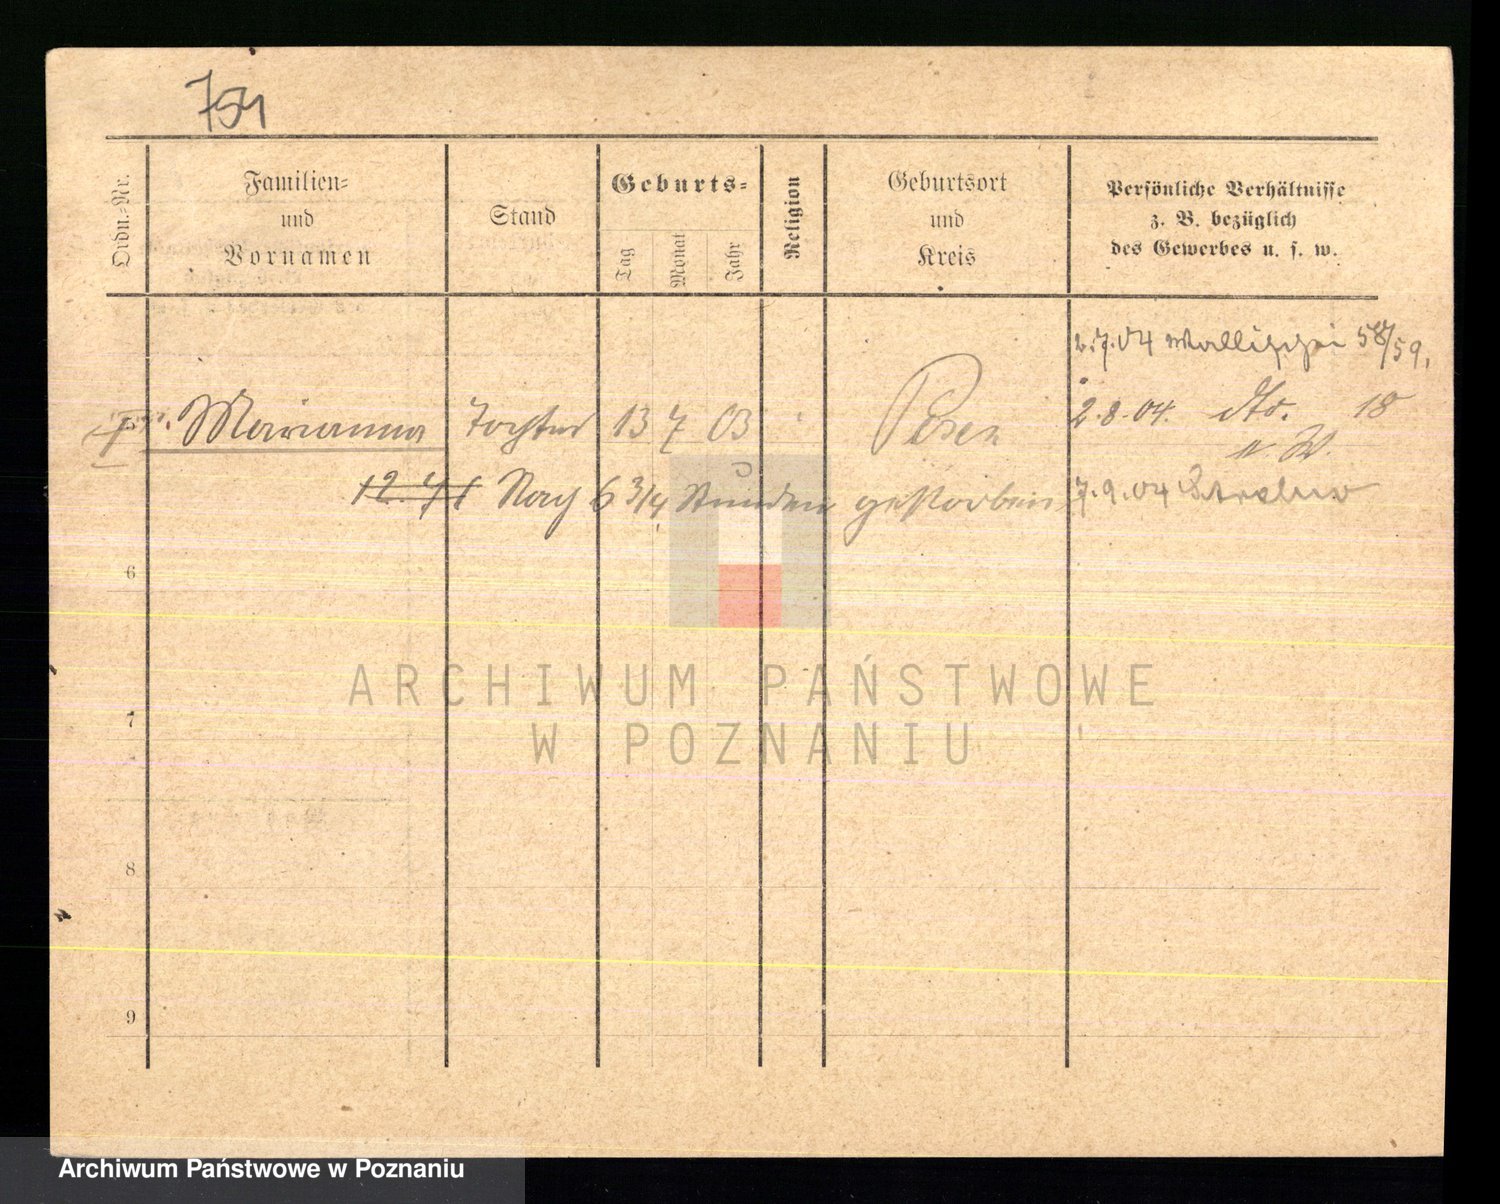 754
Ordn.-Nr.
Familien-
und
Vornamen
Stand
Geburts-
Tag
Monat
Jahr
Religion
Geburtsort
und
Kreis
Persönliche Verhältnisse
z. B. bezüglich
des Gewerbes u. s. w.
2.7.04 Wallischei 58/59.
Marianna Tochter 13 7 03 Posen
2.8.04. dto. 18
n. W.
Nach 6 3/4 Stunden gestorben
7.9.04
6
7
8
9
ARCHIWUM PAŃSTWOWE
W POZNANIU
Archiwum Państwowe w Poznaniu